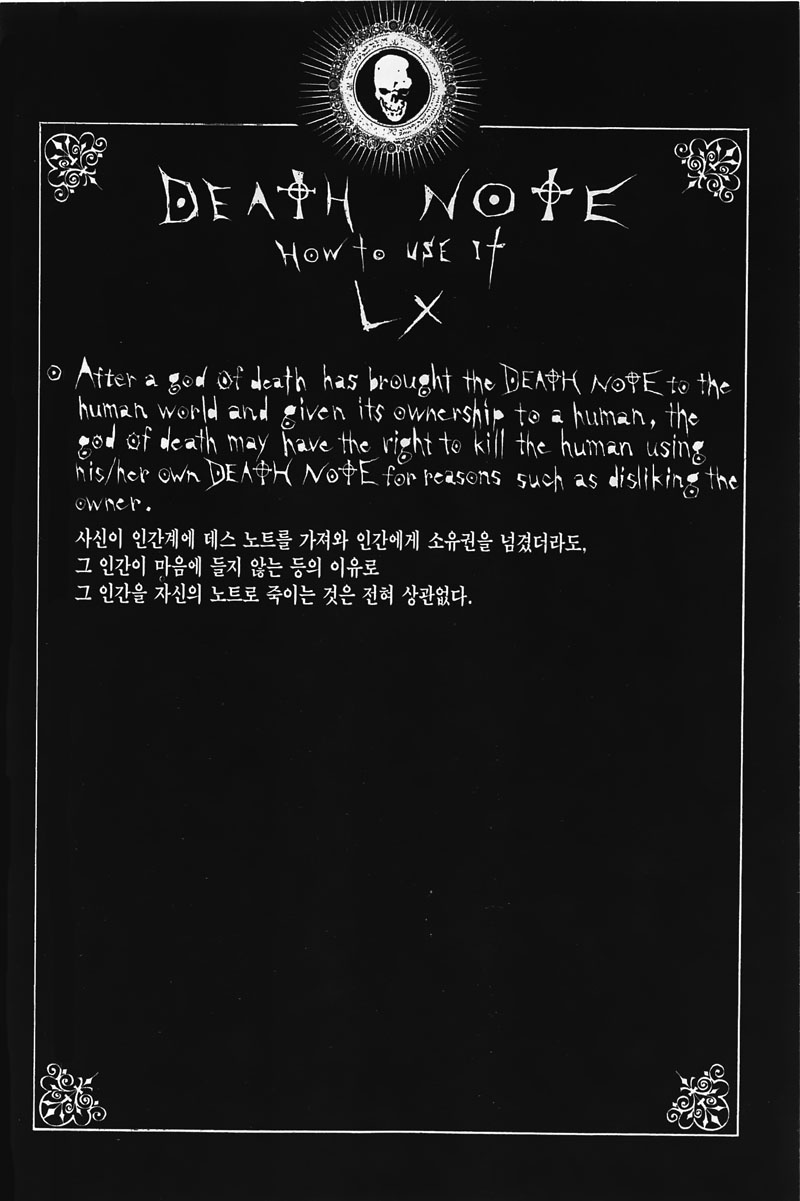 DEATH NOTE
HOW to USE It
LX
After a god of death has brought the DEATH NOTE to the
human world and given its ownership to a human, the
god of death may have the right to kill the human using
his/her own DEATH NOTE for reasons such as disliking the
owner.
사신이 인간계에 데스 노트를 가져와 인간에게 소유권을 넘겼더라도,
그 인간이 마음에 들지 않는 등의 이유로
그 인간을 자신의 노트로 죽이는 것은 전혀 상관없다.